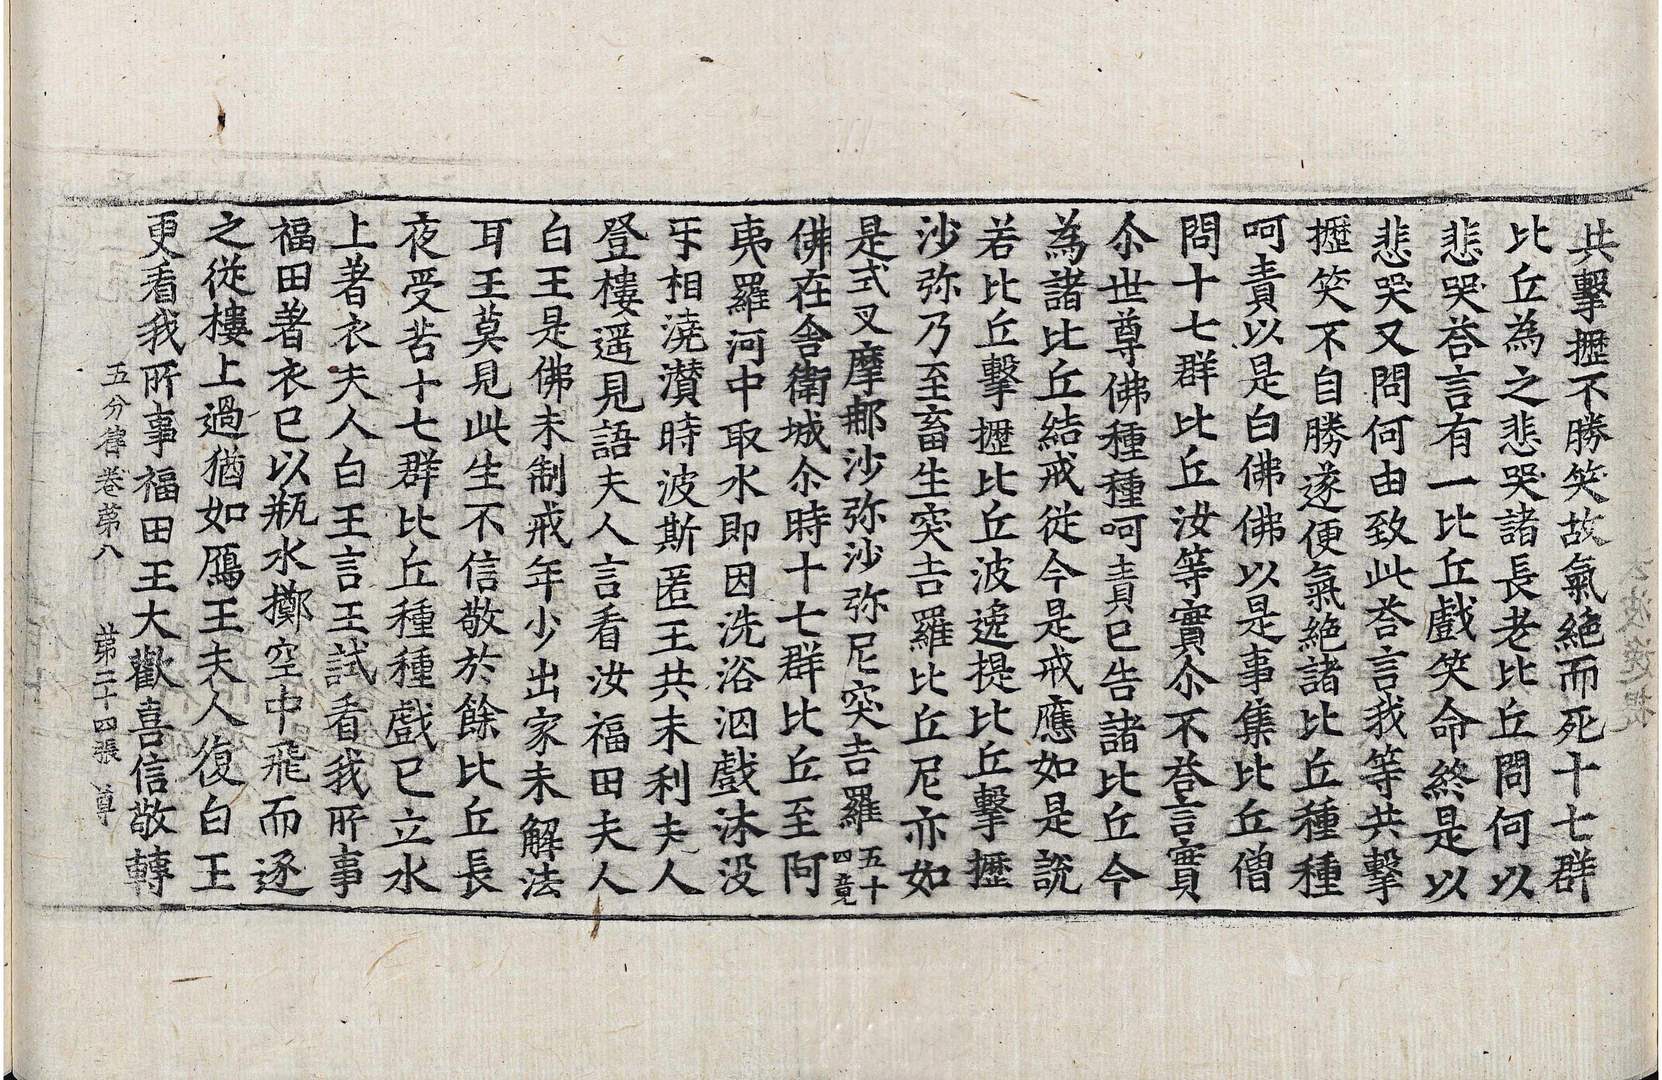 共擊攊不勝笑故氣絕而死十七群
比丘為之悲哭諸長老比丘問何以
悲哭荅言有一比丘戲笑命終是以
悲哭又問何由致此荅言我等共擊
攊笑不自勝遂便氣絕諸比丘種種
呵責以是白佛佛以是事集比丘僧
問十七群比丘汝等實尒不荅言實
尒世尊佛種種呵責已告諸比丘今
為諸比丘結戒從今是戒應如是說
若比丘擊攊比丘波逸提比丘擊攊
沙弥乃至畜生突吉羅比丘尼亦如
是式叉摩那沙弥沙弥尼突吉羅五十四竟
佛在舍衛城尒時十七群比丘至阿
夷羅河中取水即因洗浴泅戲沐没
㸦相澆灒時波斯匿王共末利夫人
登樓遥見語夫人言看汝福田夫人
白王是佛未制戒年少出家未解法
耳王莫見此生不信敬於餘比丘長
夜受苦十七群比丘種種戲已立水
上著衣夫人白王言王試看我所事
福田著衣已以瓶水擲空中飛而逐
之從樓上過猶如鴈王夫人復白王
更看我所事福田王大歡喜信敬轉
五分律卷第八 第二十四張 尊